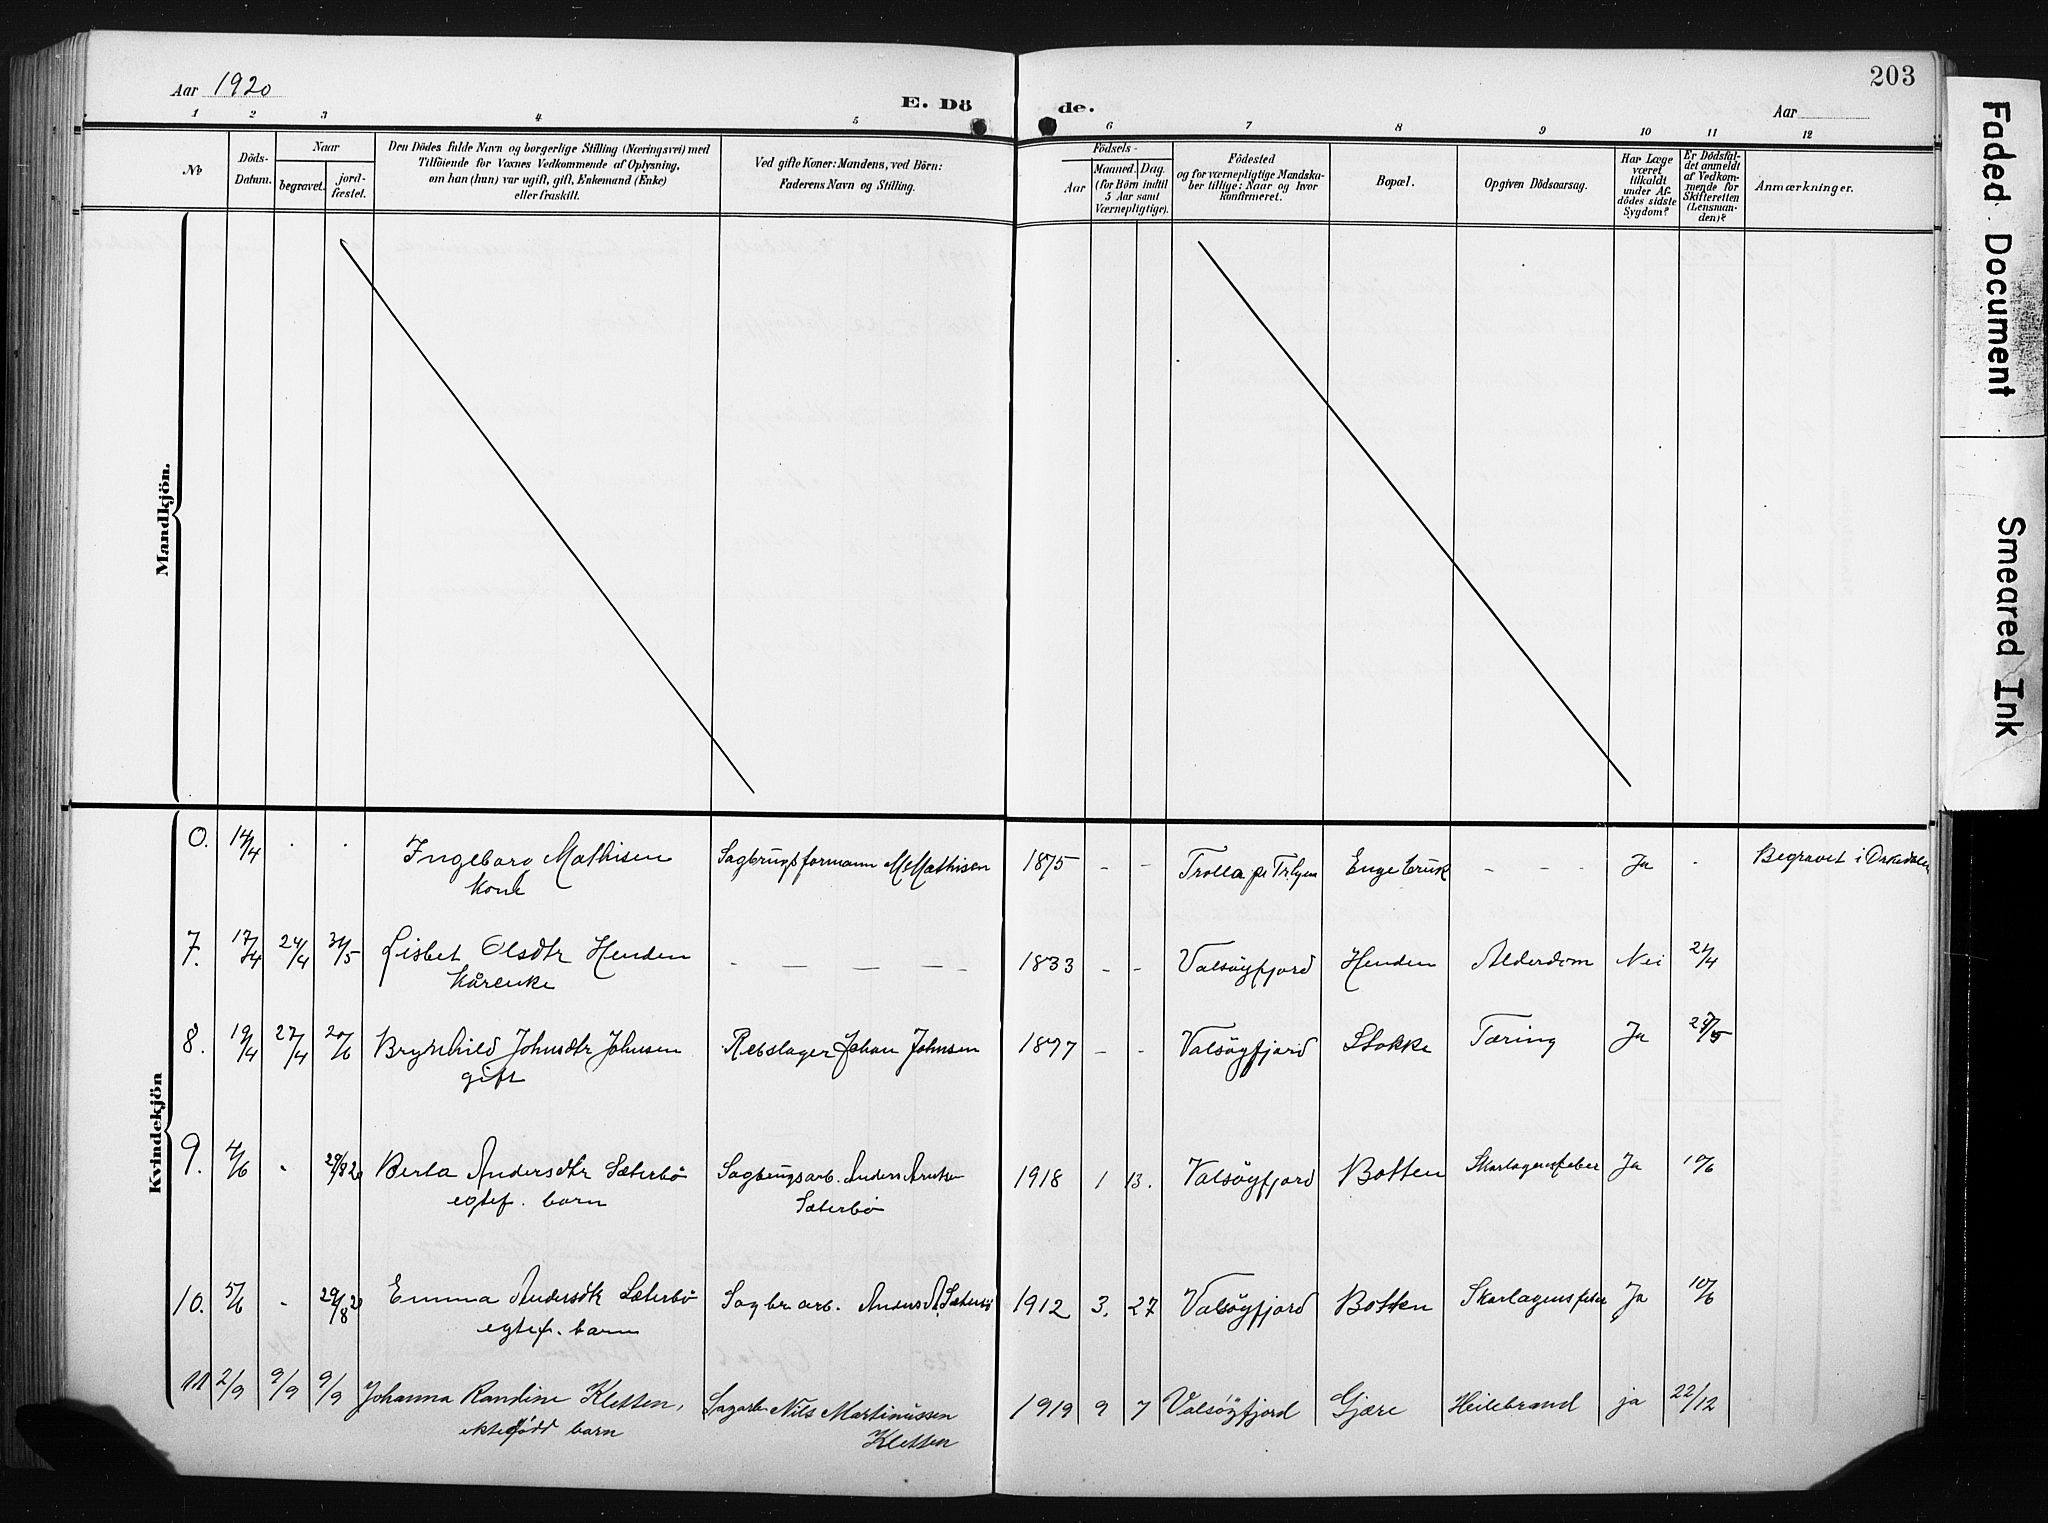 Aar 1920
E. Dö
de.
Aar
203
1 2 3 4 5 6 7 8 9 10 11 12
No
Döds-
Datum.
Naar
begravet.
jord-
fæstet.
Den Dödes fulde Navn og borgerlige Stilling (Næringsvei) med
Tilföiende for Voxnes Vedkommende af Oplysning,
om han (hun) var ugift, gift, Enkemand (Enke)
eller fraskilt.
Ved gifte Koner: Mandens, ved Börn:
Faderens Navn og Stilling.
Födsels-
Aar
Maaned. Dag.
(for Börn indtil
5 Aar samt
Værnepligtige).
Födested
og for værnepligtige Mandska-
ber tillige: Naar og hvor
konfirmeret.
Bopæl.
Opgiven Dödsaarsag.
Har Læge
været
tilkaldt
under Af-
dödes sidste
Sygdom?
Er Dödsfal-
det anmeldt
af Vedkom-
mende for
Skifteretten
(Lensman-
den)?
Anmærkninger.
Mandkjön.
Kvindekjön
0. 14/4 . . Ingeborg Mathisen Sagbrugsformann M Mathisen 1875 - - Trolla pr Tr.hjem Engebruk - - - Ja . Begravet i Orkedalen
Kone
7. 17/4 24/4 31/5 Lisbet Olsdtr Henden - - - - - 1833 - - Valsøyfjord Henden Alderdom Nei 24/4
Kårenke
8. 19/4 27/4 20/6 Brynhild Johnsdtr Johnsen Rebslager Johan Johnsen 1897 - - Valsøyfjord Stokke Tæring Ja 27/5
gift
9. 4/6 . 29/8 20 Berta Andersdtr Sæterbø Sagbrugsarb. Anders Arntsen 1918 1 13. Valsøyfjord Botten Skarlagensfeber Ja 10/6
egtef. barn Sæterbø
10. 5/6 . 29/8 20 Emma Andersdtr Sæterbø Sagbr arb. Anders A Sæterbø 1912 3. 27 Valsøyfjord Botten Skarlagensfeber Ja 10/6
egtef. barn
11 2/9 9/9 9/9 Johanna Randine Kletten, Sagarb Nils Martinussen 1919 9 7 Valsøyfjord Gjære Heilebrand ja 22/12
ektefødd barn Kletten
Faded Document
Smeared Ink